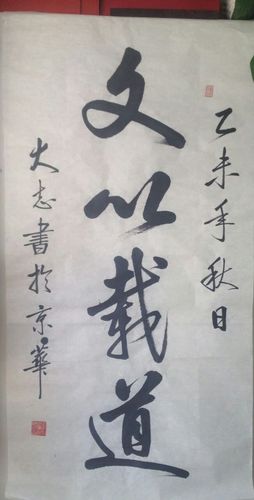 乙未年秋日
文以載道
大志書於京華